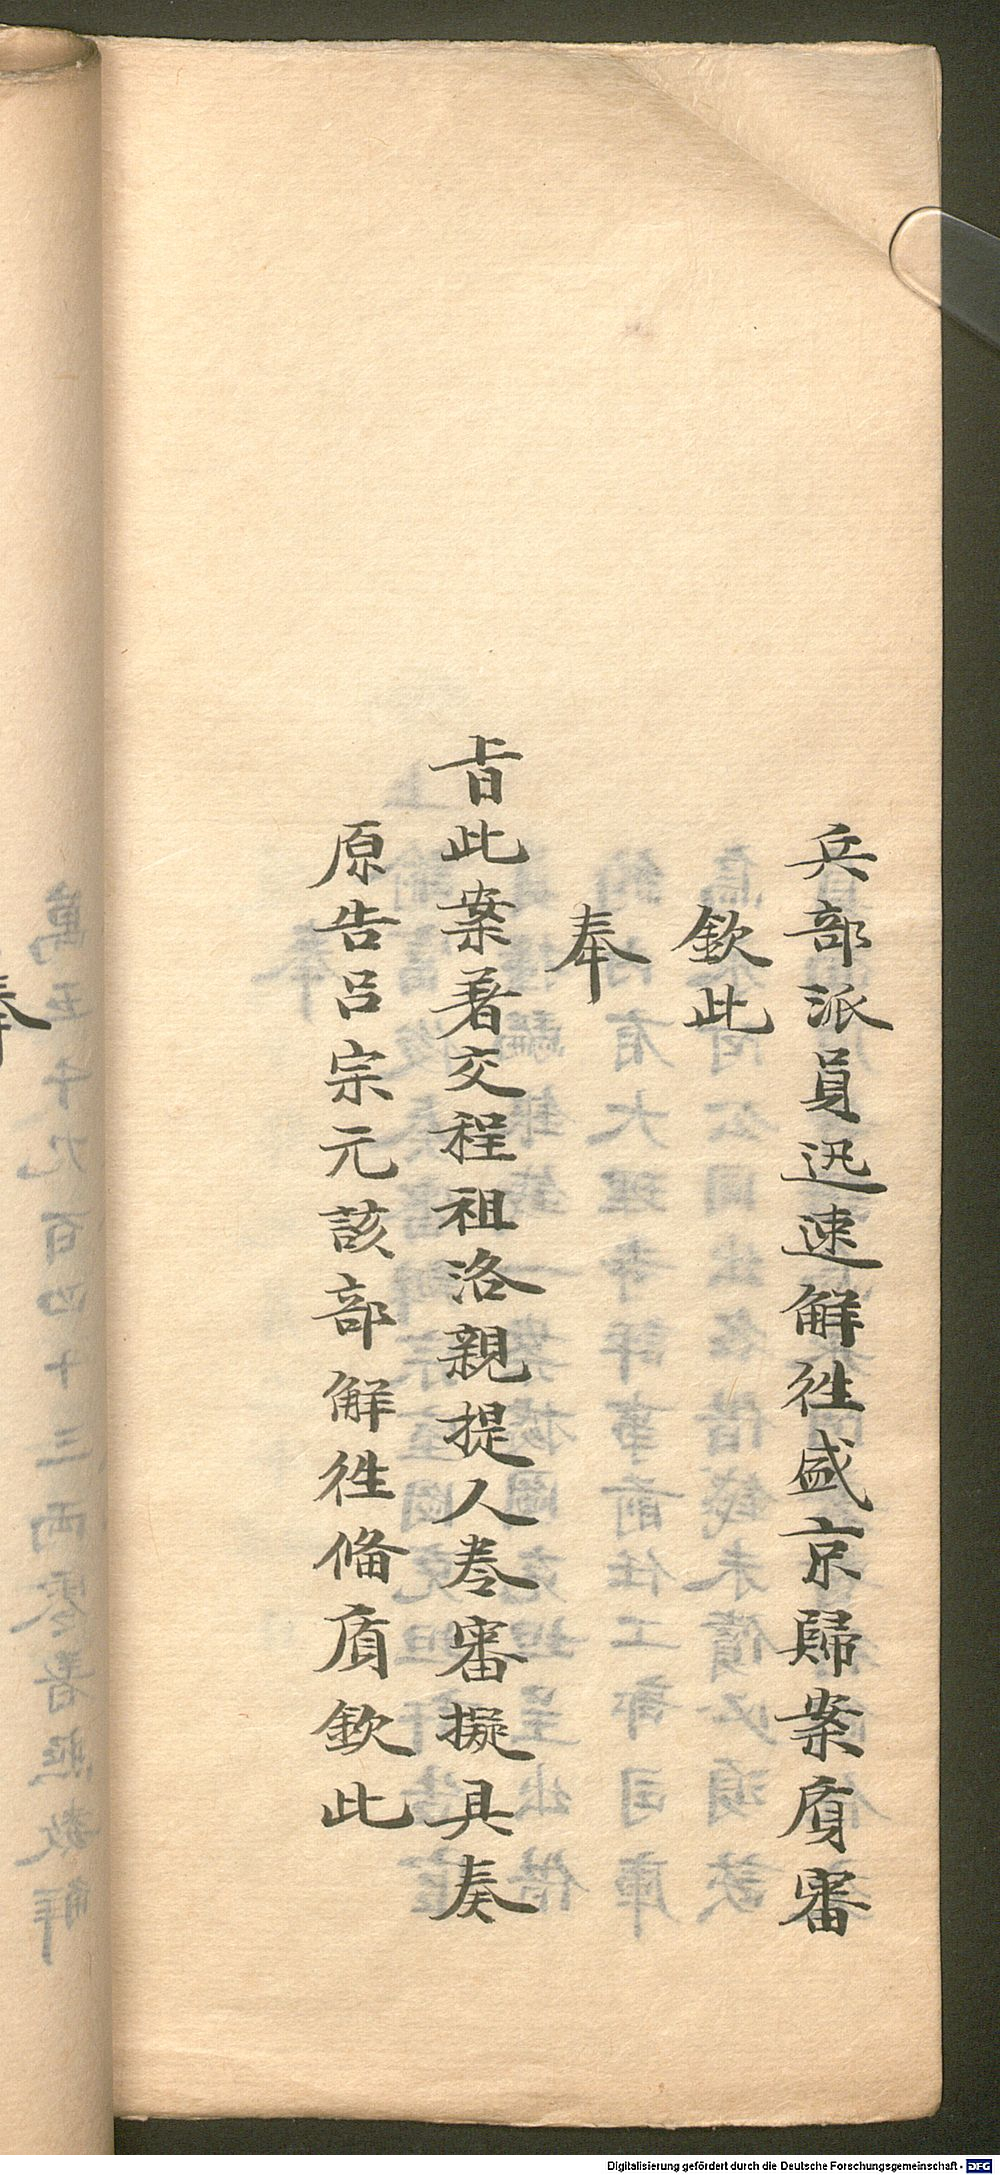 兵部派員迅速解徃盛京歸案質審
欽此
奉
旨此案著交程祖洛親提人卷審擬具奏
原告呂宗元該部解徃俻質欽此
奉
Digitalisierung gefördert durch die Deutsche Forschungsgemeinschaft - DFG